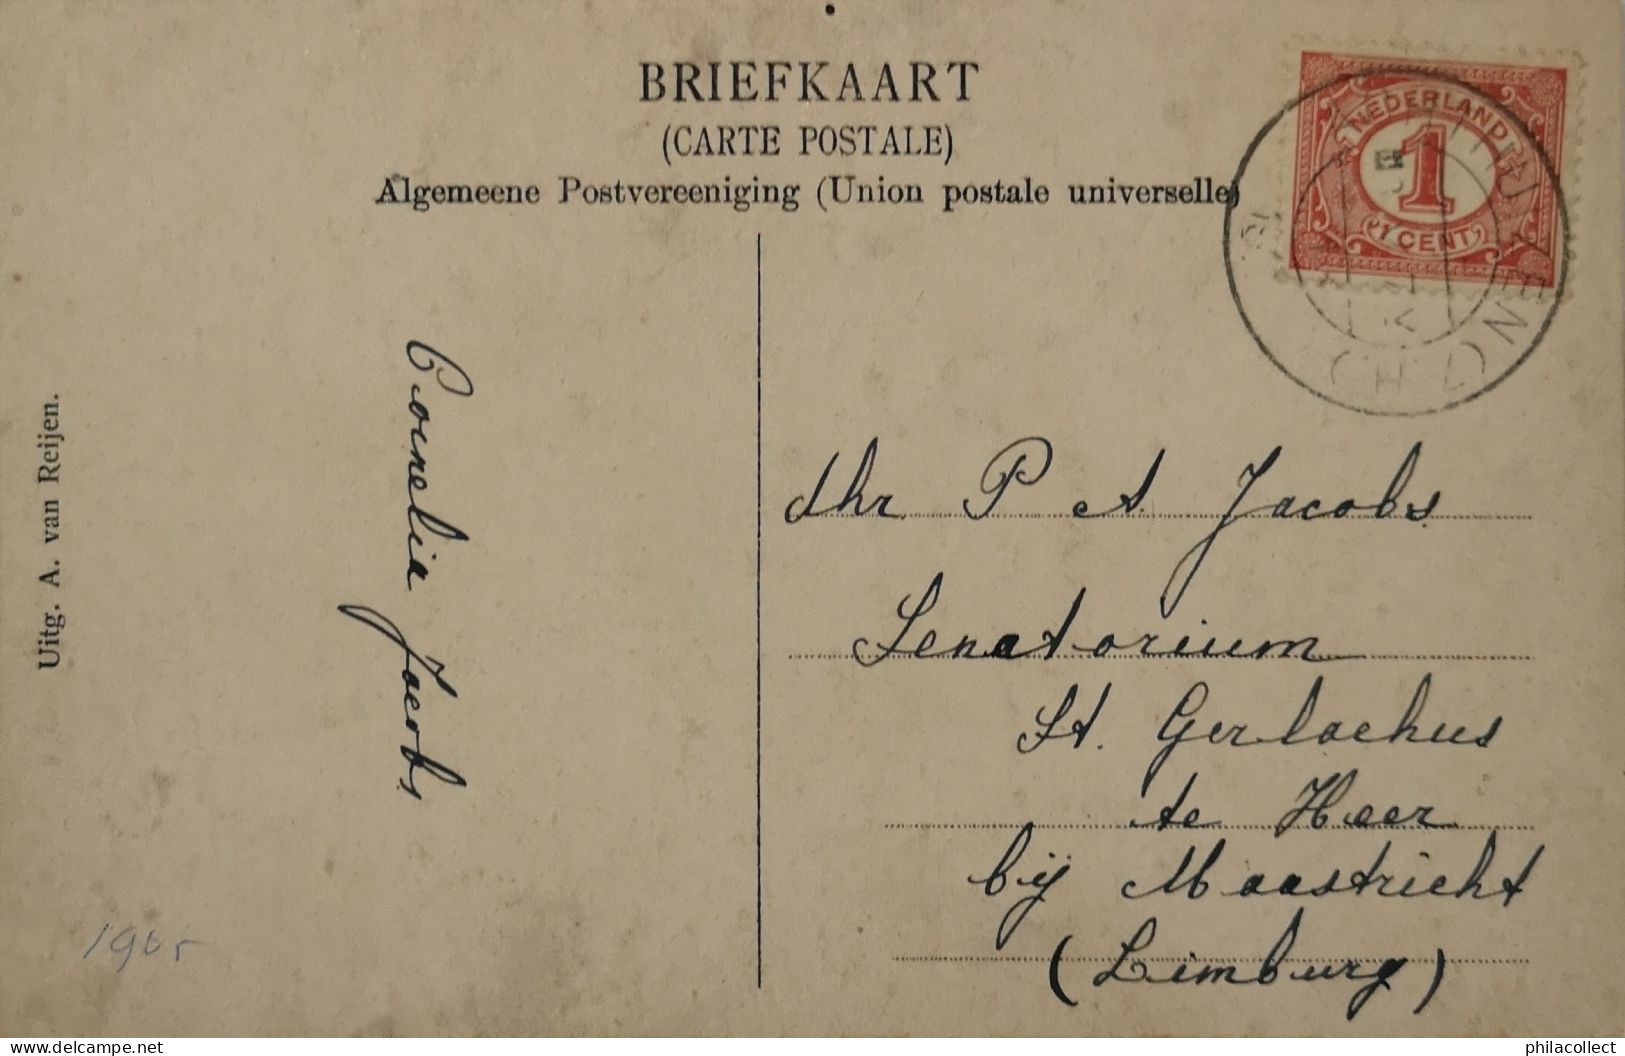 BRIEFKAART
(CARTE POSTALE)
Algemeene Postvereeniging (Union postale universelle)
NEDERLAND
1
1 CENT
(Z.H.)
Uitg. A. van Reijen.
Cornelia Jacobs
dhr P A Jacobs
Senatorium
St. Gerlachus
te Heer
bij Maastricht
(Limburg)
philacollect